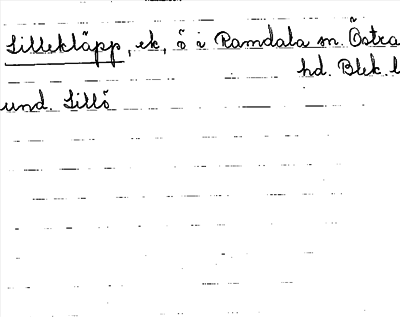 Lillekläpp, ek, ö i Ramdala sn. Östra
hd. Blek. l
und. Lillö